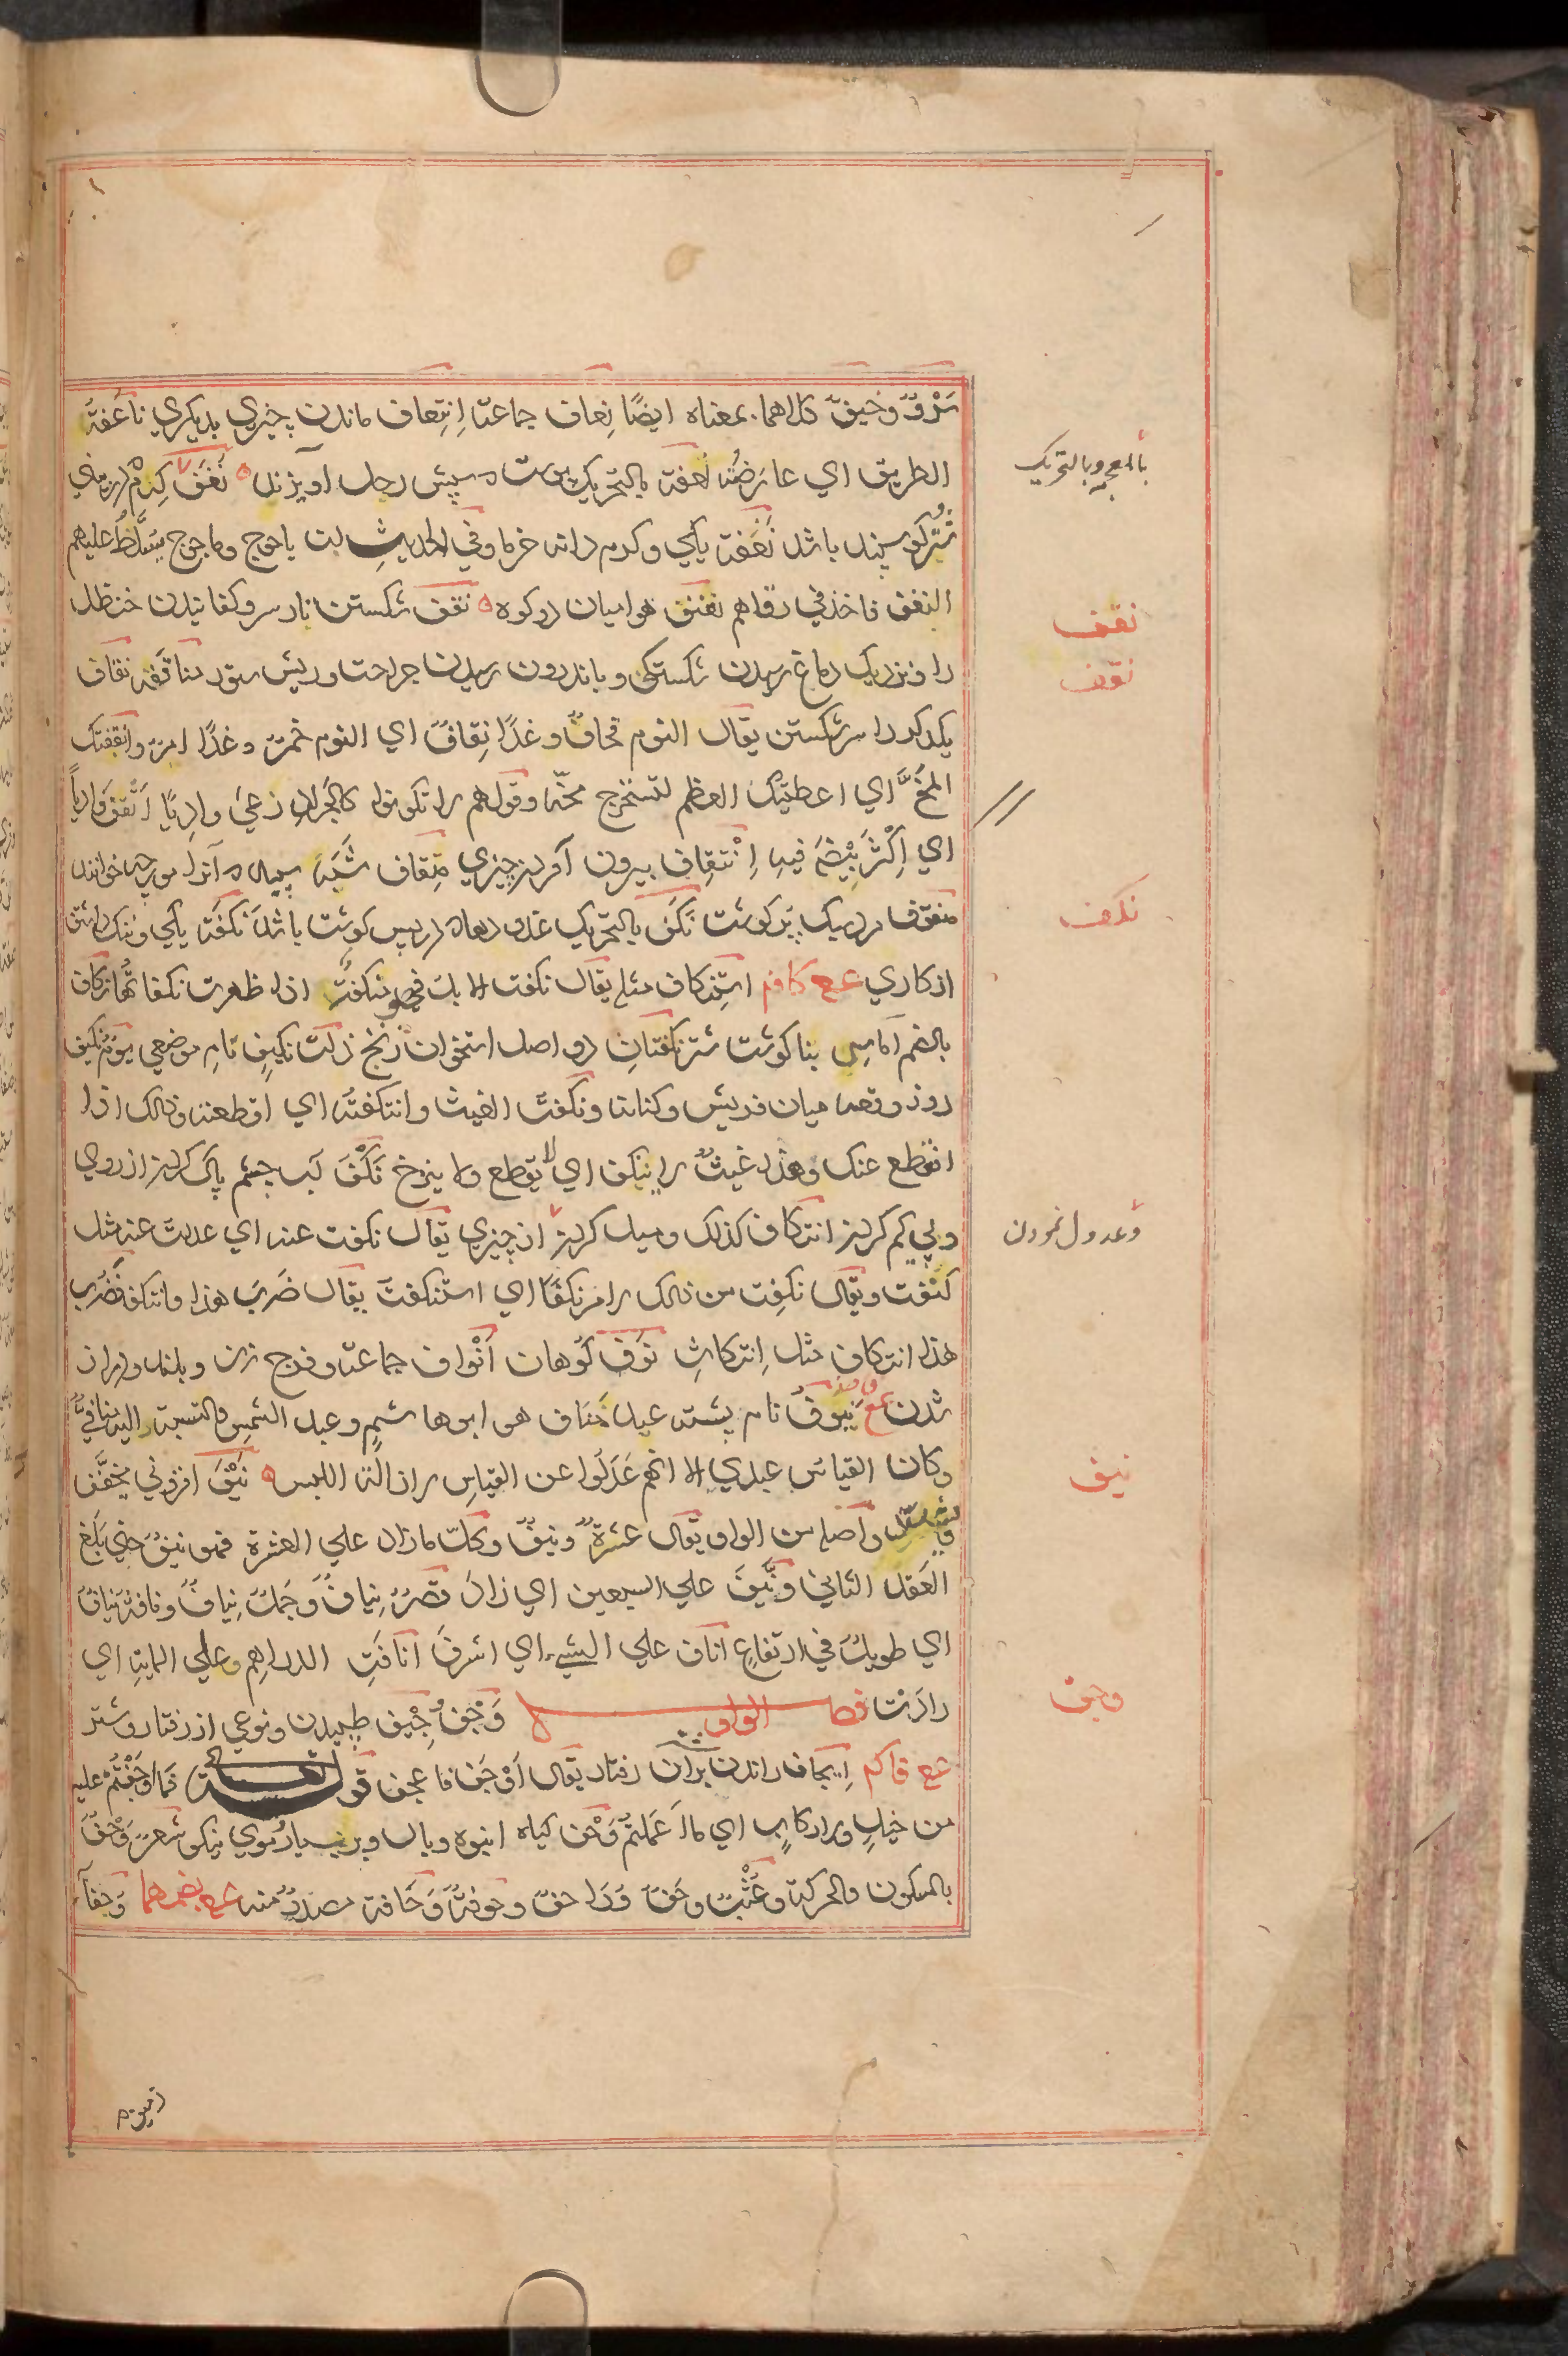 وخيف كلاهما بمعناه ايضًا نعاف جماعة اِنتِعاف ماندن چيزي بديكري ناعَفْتُ
الطريق اي عارَضْتُه نعفة بالتحريك پوست که سپش رحل آويزند نَغَف كِرم در بيني
بالمعجمه وبالتحريك
شتر كوسپند باشد نَغَفة يكي وكرم دانه خرما وفي الحديثِ ان ياجوج وماجوج يسلّطُ عليهم
النغف فياخذ في رقابهم نفنف هوا ميان دو كوه نقف شكستن سر وكفانيدن حنظل
نقف
نقف
را ونزديك دماغ رسيدن شكستكي وباندرون رسيدن جراحت وريش ستور مناقفة نقاف
يكديكر را سر شكستن يقال اليوم قحافٌ وغدًا نِقافٌ اي اليوم خمر وغدًا امر وانقفتك
المُخَّ اي اعطيتك العظم لتستخرج مخّه وقولهم لا تكونوا كالجراد رعيٰ واديًا اَنْقَف واديًا
اي اكثر بيضه فيه اِنْتِقاف بيرون آوردن چيزي
منقوف مرد سبك پر كوشت نَكَف بالتحريك غدودها در پس كوشت باشد نَكَفَة يكي وننك داشتن
نكف
از كاري عع كافم استنكاف مثله يقال نكفت الابل فهي منكفةٌ اذا ظهرت نكفاتها نكاف
بالضم آماس بناكوشت شتر نكفتان دو اصل استخوان زنخ ذات نكيف نام موضعي يوم نكيف
روز وقعه ميان قريش وكنانه ونكفت الغيث وانتكفته اي اقطعته وذلك اذا
انقطع عنك وهذا غيثٌ لا ينكف اي لا يقطع ولا ينزح نَكْف آب چشم پاك كردن از روي
وپي كم كردن انتكاف كذلك وميل كردن از چيزي يقال نكفت عنه اي عدلت عنه مثل
وعدول نمودن
كنفت ويقال نكِفت من ذلك الامر نكفًا اي استنكفت يقال ضَرَبَ هذا فانتكف فَضَرَبَ
هذا انتكاف مثل اِنتكاثِ نوف كوهان اَنْواف جماعة وفرج زن وبلند ودراز
شدن عع نيوف نام پشته عبد مناف هو ابو هاشمٍ وعبد الشمس والنسبة اليه منافيٌّ
وكان القياس عبدي الا انهم عَدَلُوا عن القياسِ لازالة اللبس نَيْف افزوني يخفّف
نيف
ويشدّد واصله من الواو يقال عشرةٌ ونيفٌ وكلّ ما زاد علي العشرة فهو نيفٌ حتي بَلَغ
العَقد الثاني ونَيَّفَ علي السبعين اي زاد قصرٌ نِيافٌ وجَملٌ نِيافٌ وناقة نيافٌ
اي طويلٌ في ارتفاعٍ اناف علي الشيء اي اشرفَ انافَتِ الدراهم علي الماية اي
زادَتْ فصل الواو وَجْفٌ وجيف طپيدن ونوعي از رفتار شتر
وجف
عع فاكم اِيجاف راندن بران رفتار يقال اَوْجَف فاعجف قوله تعالي فما اَوْجَفْتُمْ عليه
من خيلٍ ولا ركابٍ اي ما اَعْمَلتم وَحْف كياه انبوه وبال وپر بسيار وموي نيكو شعرٌ وَحْفٌ
بالسكون والحركة وعُشْبٌ وحَفٌ ووَاحفٌ وحوفةٌ وَحَافة مصدرٌ منه عع بضمهما وَحْفآءُ